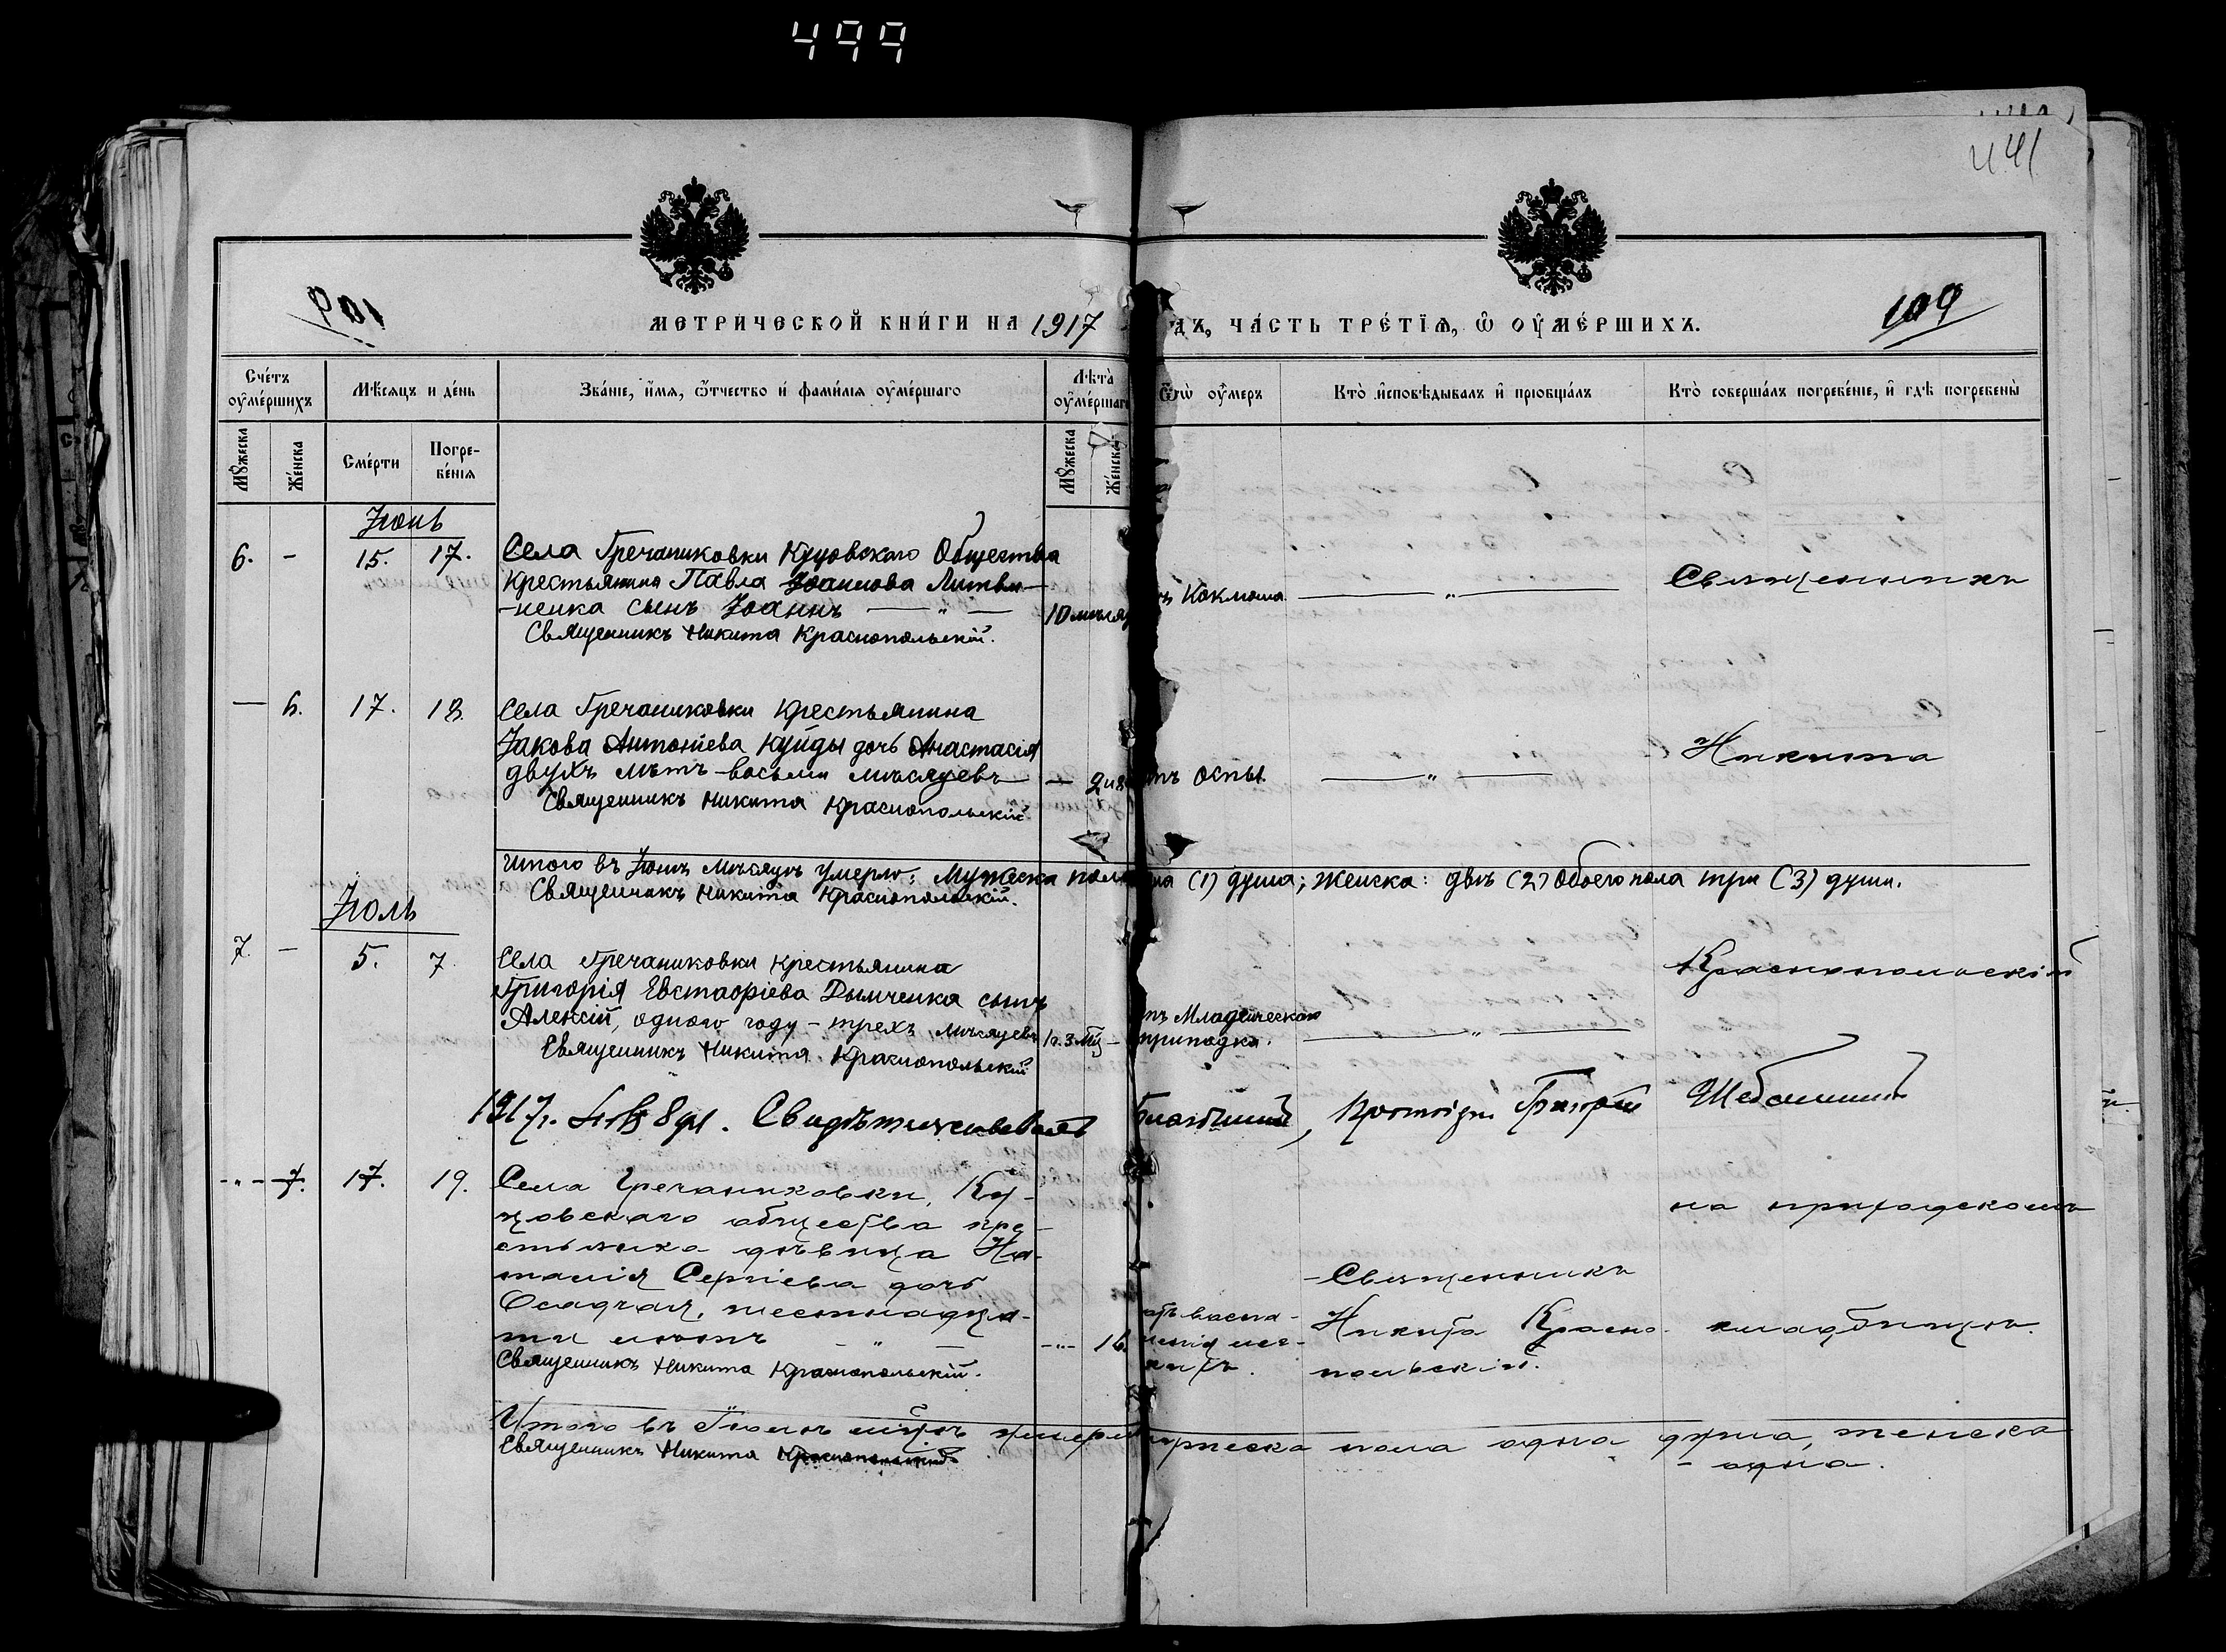 499
441
109
МЕТРИ́ЧЕСКОЙ КНИ́ГИ НА 1917 ДЪ, ЧА́СТЬ ТРЕ́ТЇѦ, Ѡ҆ ОУ҆МЕ́РШИХЪ.
109
Сче́тъ оу҆ме́ршихъ
Мѣ́сяцъ и де́нь
Зва́нїе, и҆́мя, ѻ҆́тчество и҆ фами́лїя оу҆ме́ршаго
Лѣ́та оу҆ме́ршаго
Ѿ чегѡ̀ оу҆́меръ
Кто̀ и҆сповѣ́дывалъ и҆ прїобща́лъ
Кто̀ соверша́лъ погребе́нїе, и҆ гдѣ̀ погребены̀
Мꙋ́жеска
Же́нска
Сме́рти
Погребе́нїя
Мꙋ́жеска
Же́нска
Іюнь
6. - 15. 17. Села Гречаниковки Куцовскаго Общества
крестьянина Павла Іоаннова Литви-
-ненка сынъ Іоаннъ — „ — 10 мѣсяц
Священникъ Никита Краснопольскій.
Коклюша — „ — Священникъ
— 6. 17. 18. Села Гречаниковки крестьянина
Іакова Антоніева Куйды дочь Анастасія
двухъ лѣтъ - восьми мѣсяцевъ — 2 и 8
Священникъ Никита Краснопольскій
тъ оспы. — „ — Никита
Итого въ Іюнѣ Мѣсяцѣ умерло: Мужеска пола на (1) душа; женска: двѣ (2) Обоего пола три (3) души.
Священникъ Никита Краснопольскій.
Іюль
7. - 5. 7. Села Гречаниковки крестьянина
Григорія Евстафіева Дымченка сынъ
Алексій, одного году - трехъ мѣсяцевъ 1 г. 3 мц -
Священникъ Никита Краснопольскій
тъ Младенческаго
припадка. — „ — Краснопольскій
1917 г. 8 дн. Свидѣтельствовалъ Благочинный, Протоіерей Григорій
- „ - 7. 17. 19. Села Гречаниковки, Ку-
цовскаго общества кре-
стьянка дѣвица На-
талія Сергіева дочь
Осадчая, шестнадца-
ти лѣтъ — „ — - „ - 16.
Священникъ Никита Краснопольскій.
отъ воспа-
ленія лег-
кихъ.
- Священникъ
Никита Красно-
польскій.
на приходскомъ
кладбищѣ.
Итого въ Іюлѣ мѣсяцѣ умерло мужеска пола одна душа, женска
- одна.
Священникъ Никита Краснопольскій